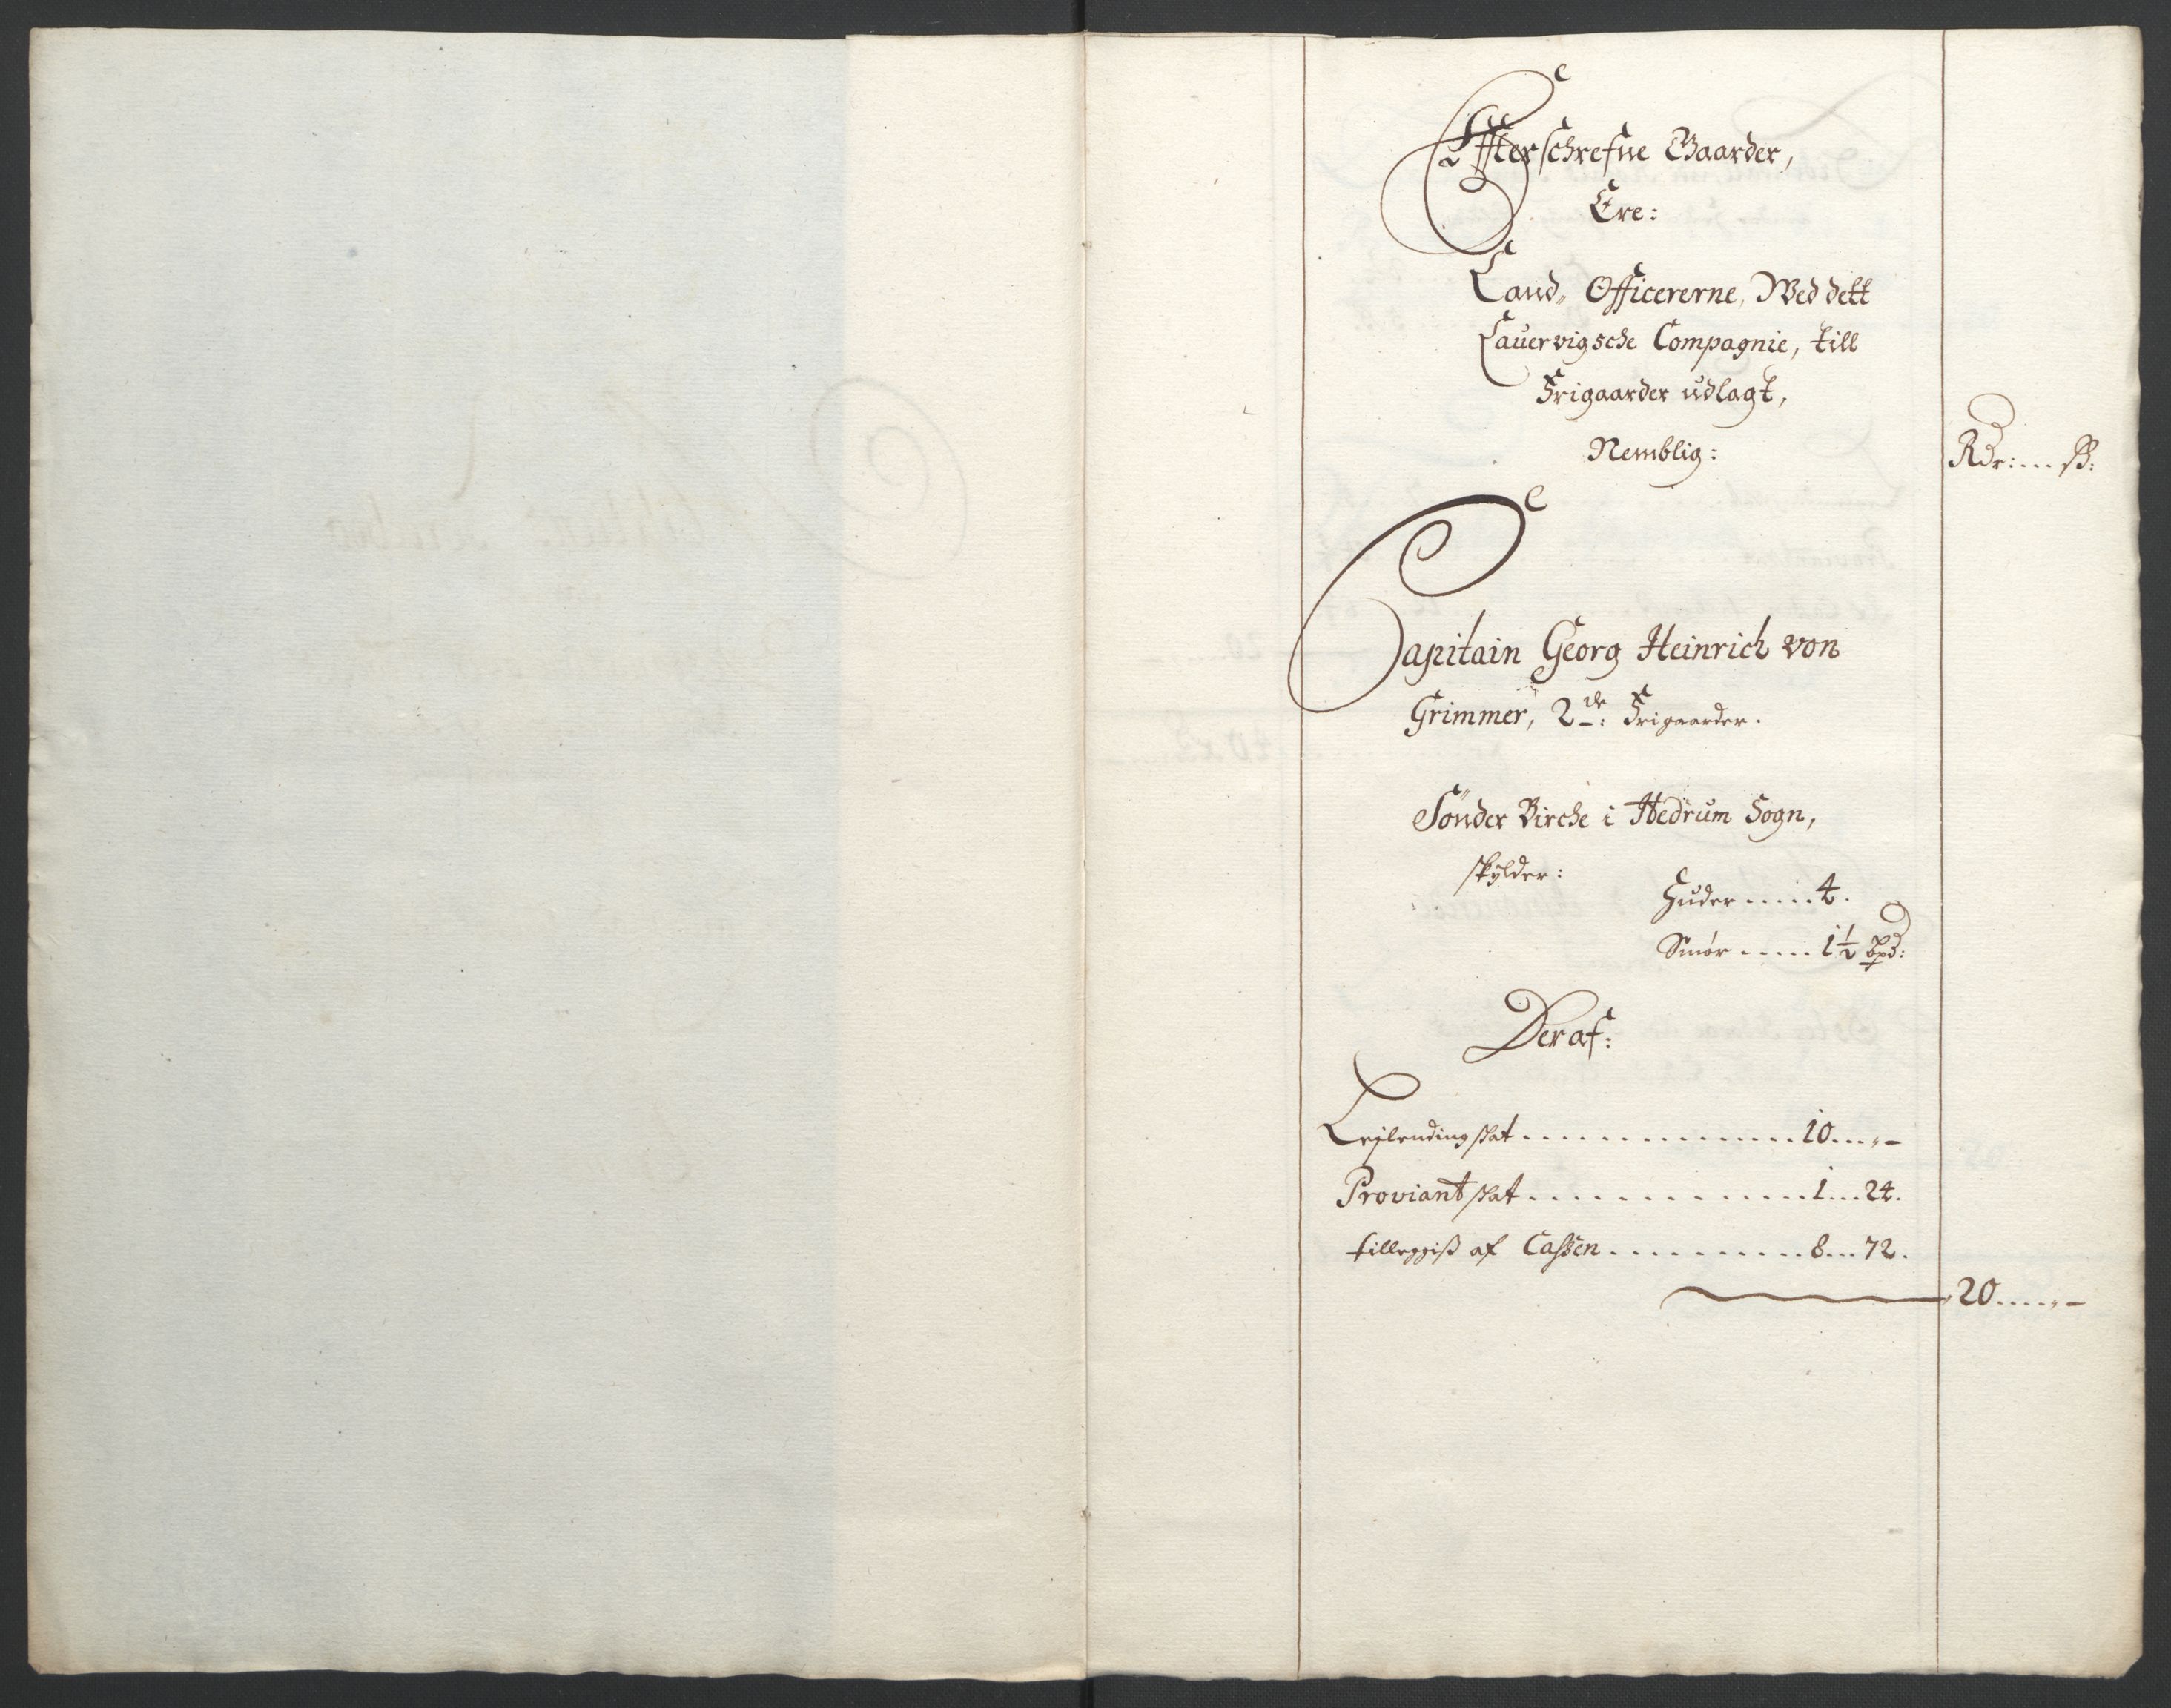 Effterschrefne Gaarder,
Ere:
Land„ Officererne, Wed dett
Lauervigsche Compagnie, till
Frigaarder udlagt,
Nemblig:
Rdr:.... ß:
Capitain Georg Heinrich von
Grimmer, 2de: Frigaarder.
Sönder Birche i Hedrum Sogn,
skylder:
Huder ..... 4.
Smör ..... 1½ bpd:
Der af:
Leilendingskat .............. 10...„-
Proviantskat .............. 1...24.
tilleggiß af Caßen .......... 8...72.
20....„-